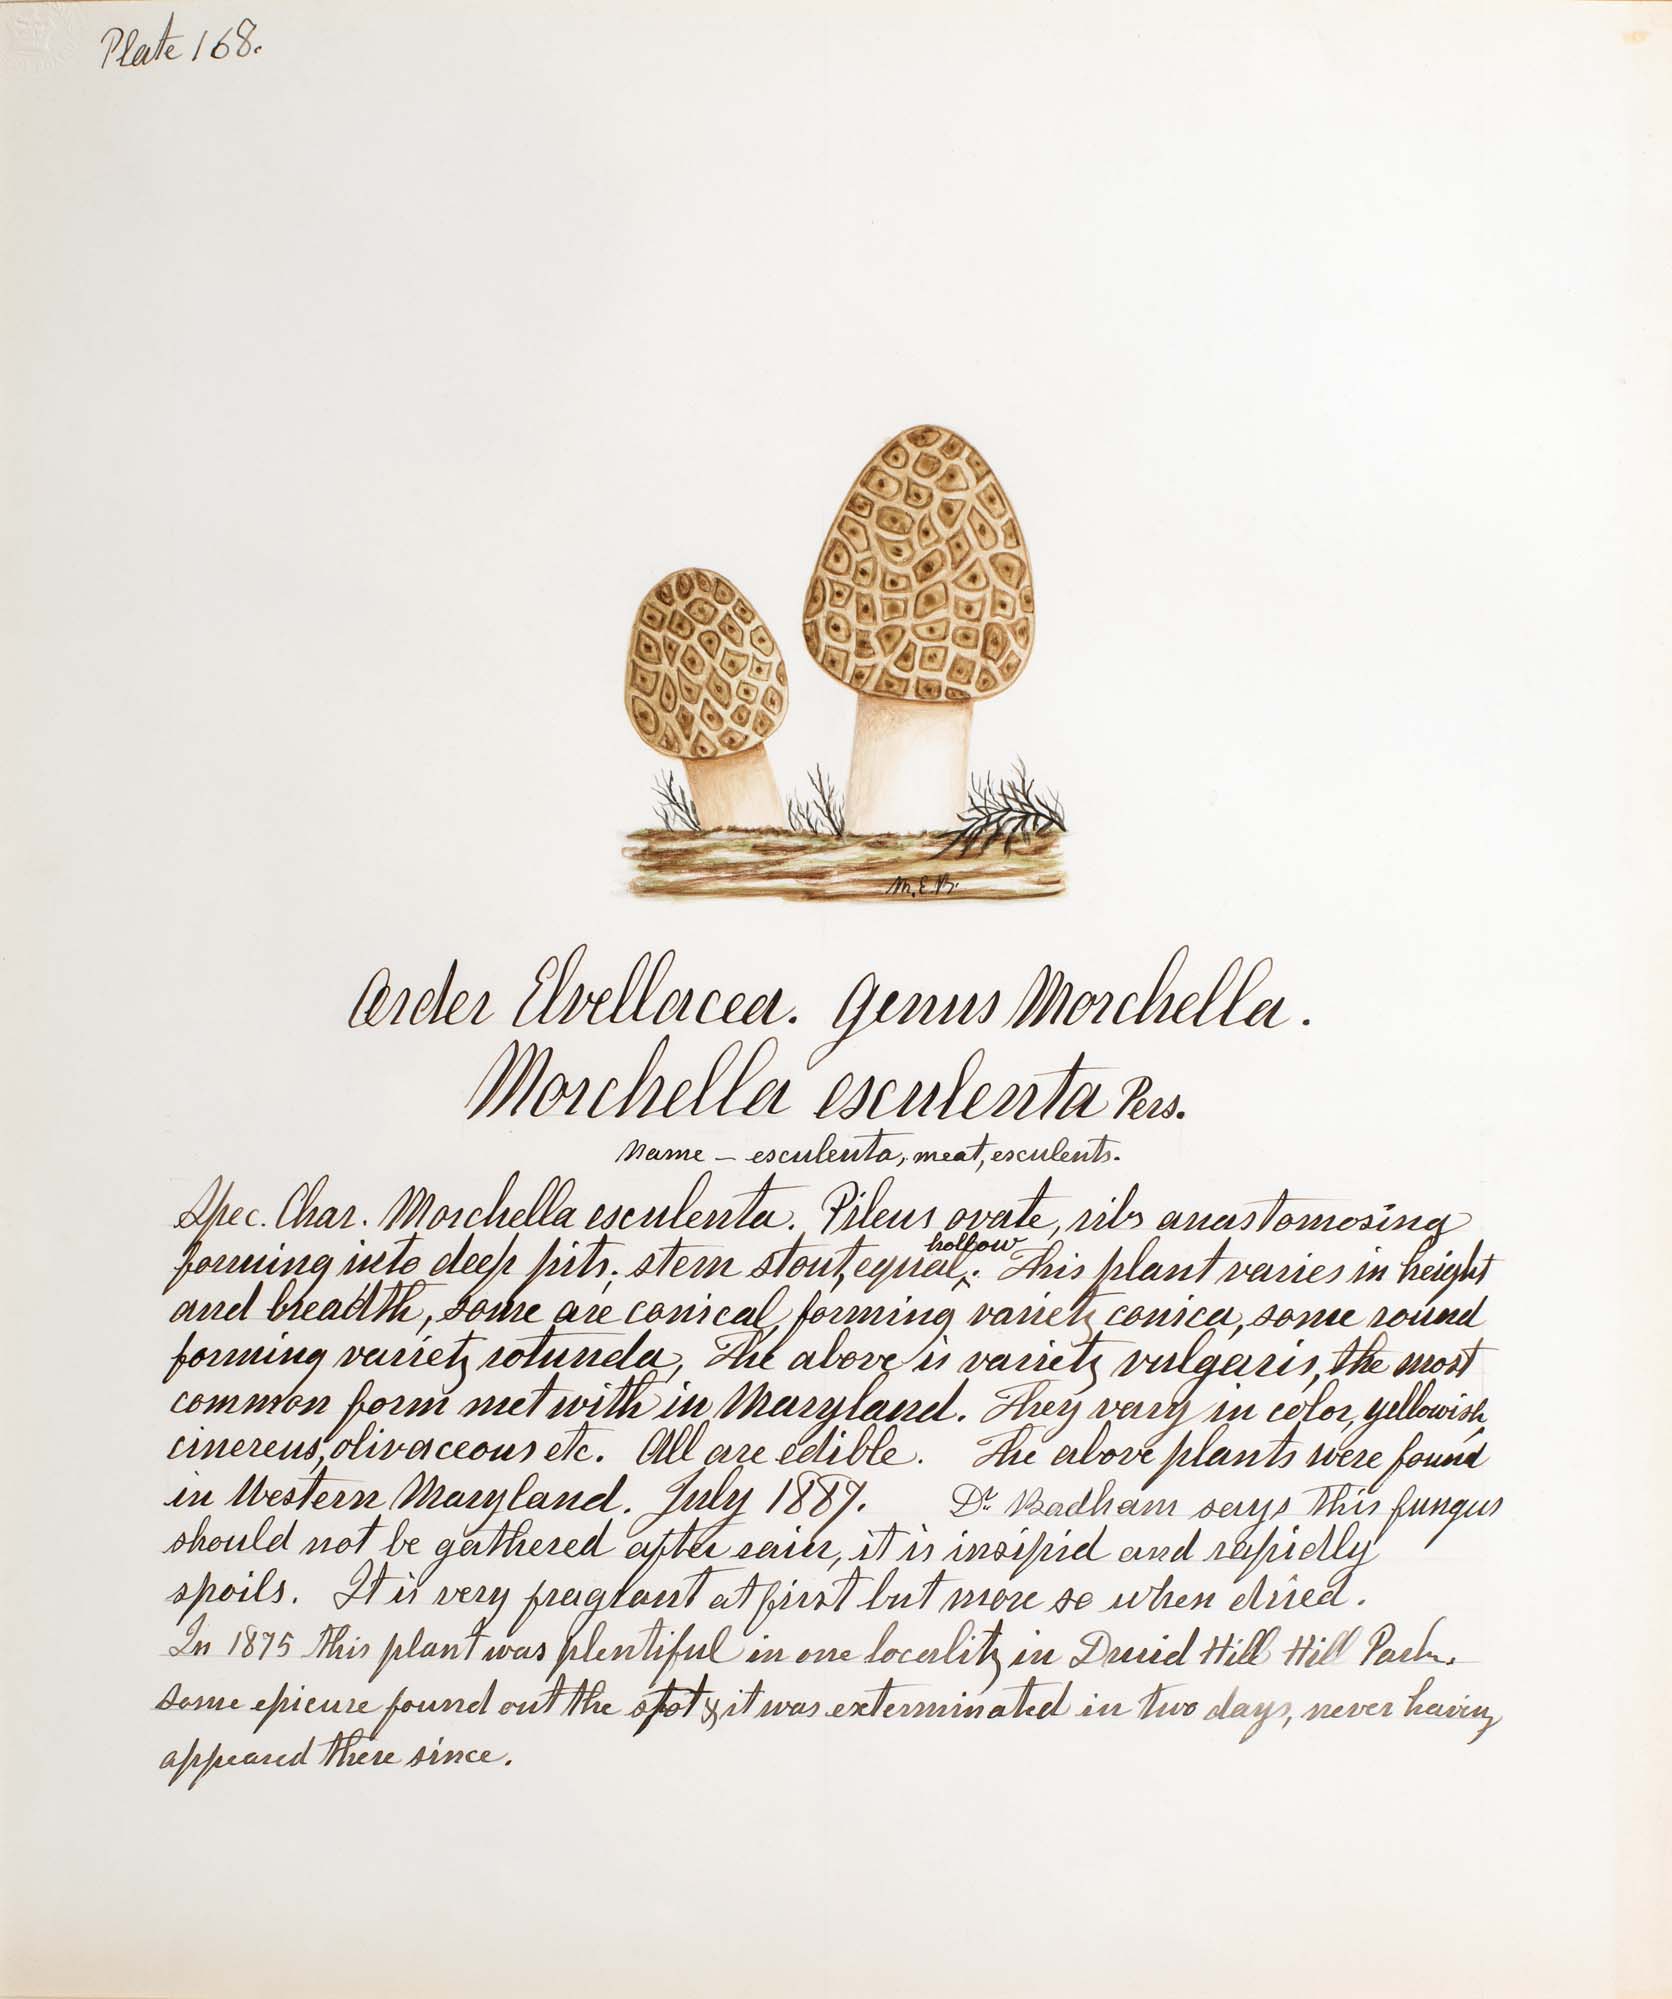 Plate 168.
M.E.B.
Order Elvellacea. Genus Morchella.
Morchella esculenta Pers.
Name – esculenta, meat, esculents.
Spec. Char. Morchella esculenta. Pileus ovate, ribs anastomosing
hollow
forming into deep pits; stem stout, equal, ^. This plant varies in height
and breadth, some are conical, forming variety conica, some round
forming variety rotunda, The above is variety vulgaris, the most
common form met with in Maryland. They vary in color, yellowish,
cinereus, olivaceous etc. All are edible. The above plants were found
in Western Maryland. July 1887. Dr. Badham says this fungus
should not be gathered after rain, it is insipid and rapidly
spoils. It is very fragrant at first but more so when dried.
In 1875 this plant was plentiful in one locality in Druid Hill Hill Park.
some epicure found out the spot & it was exterminated in two days, never having
appeared there since.